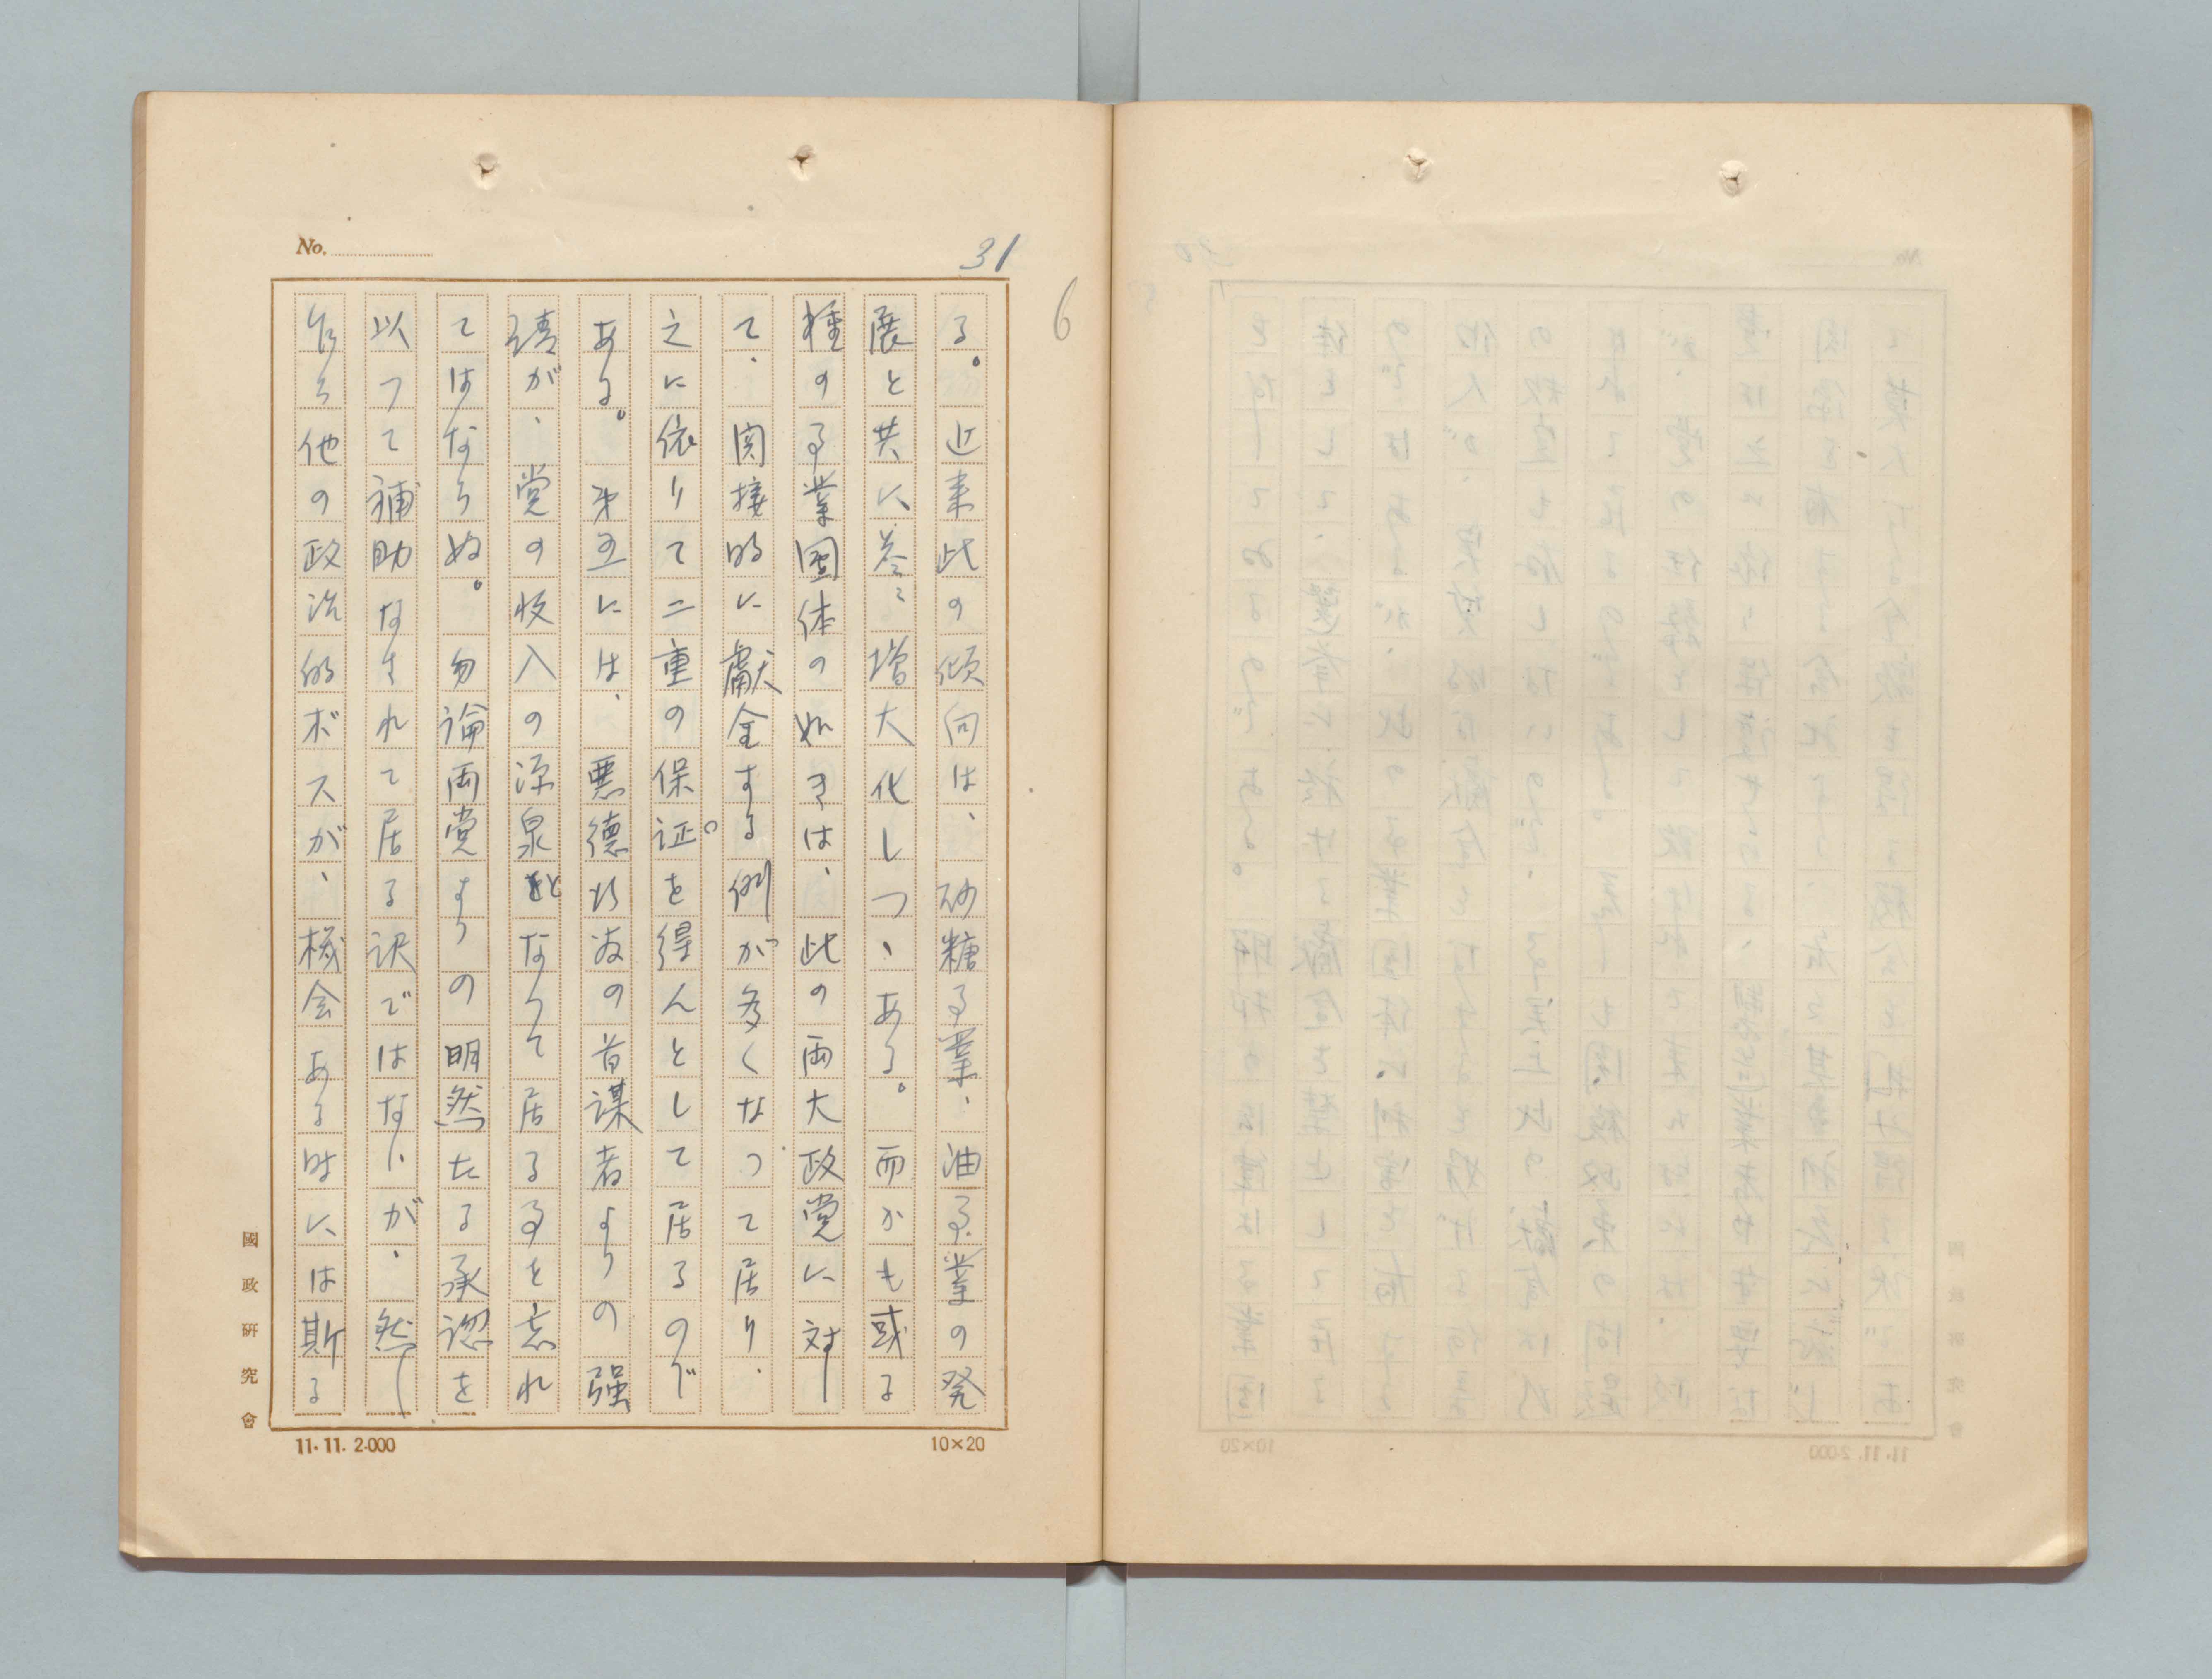 No.
31
6
る。近来此の傾向は、砂糖事業、油事業の発
展と共に益々増大化しつゝある。而かも或る
種の事業團体の如きは、此の両大政党に対し
て、間接的に献金する例が多くなつて居り、
之に依りて二重の保証を得んとして居るので
ある。第五には、悪徳行為の首謀者よりの強
請が、党の収入の源泉となりて居る事を忘れ
てはならぬ。勿論両党よりの明然たる承認を
以つて補助なされて居る訳ではないが、然し
乍ら他の政治的ボスが、機会ある時には斯る
國政研究會
11.11.2.000
10×20